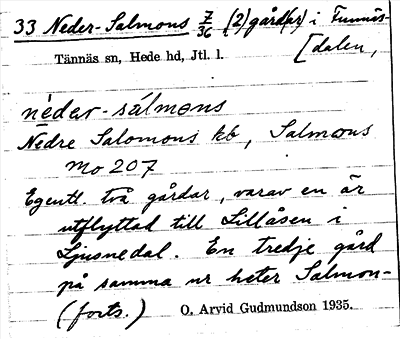 33 Neder-Salmons 7/36 (2) gård(ar) i Funnäs-
[dalen,
Tännäs sn, Hede hd, Jtl. l.
nèdər-sálmons
Nedre Salomons kb, Salmons
mo 207
Egentl. två gårdar, varav en är
utflyttad till Lillåsen i
Ljusnedal. En tredje gård
på samma nr heter Salmon-
(forts.) O. Arvid Gudmundson 1935.